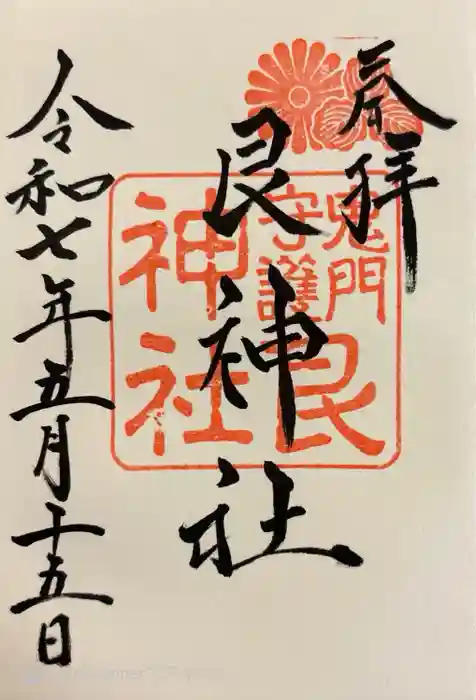 奉拝
艮神社
鬼門
守護
艮
神社
令和七年五月十五日